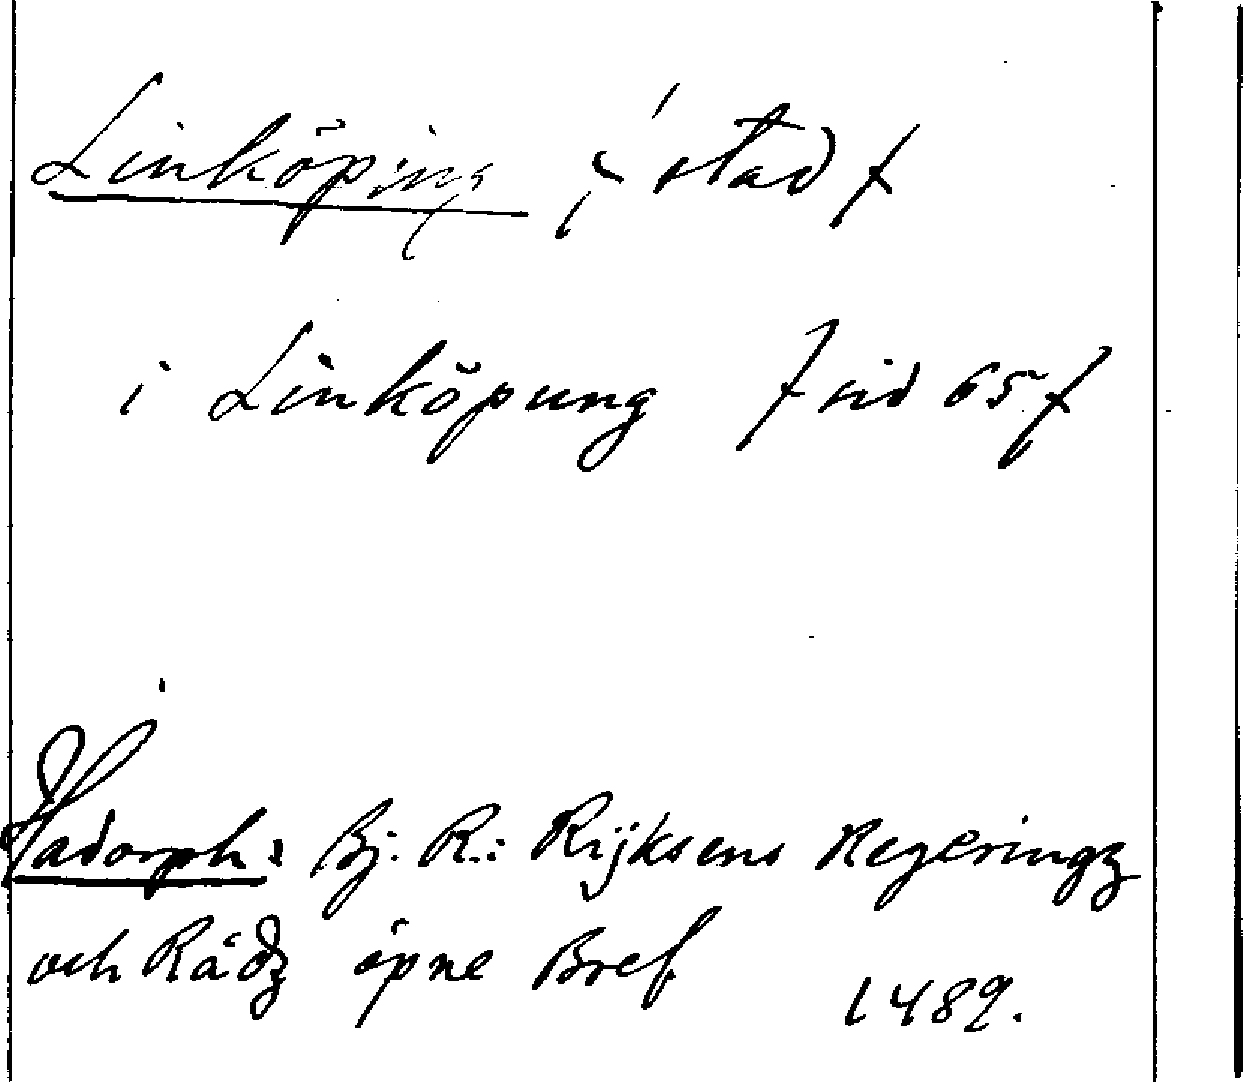 Linköping, stad
i Linköpung sid 65
Hadorph: Bj. R.: Rijksens Regeringz
och Rådz öpne Bref
1489.